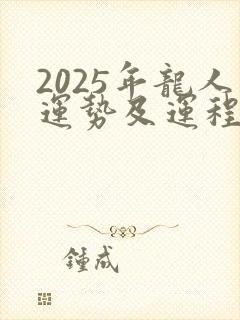 2025年龍人
運勢及運程
鍾成